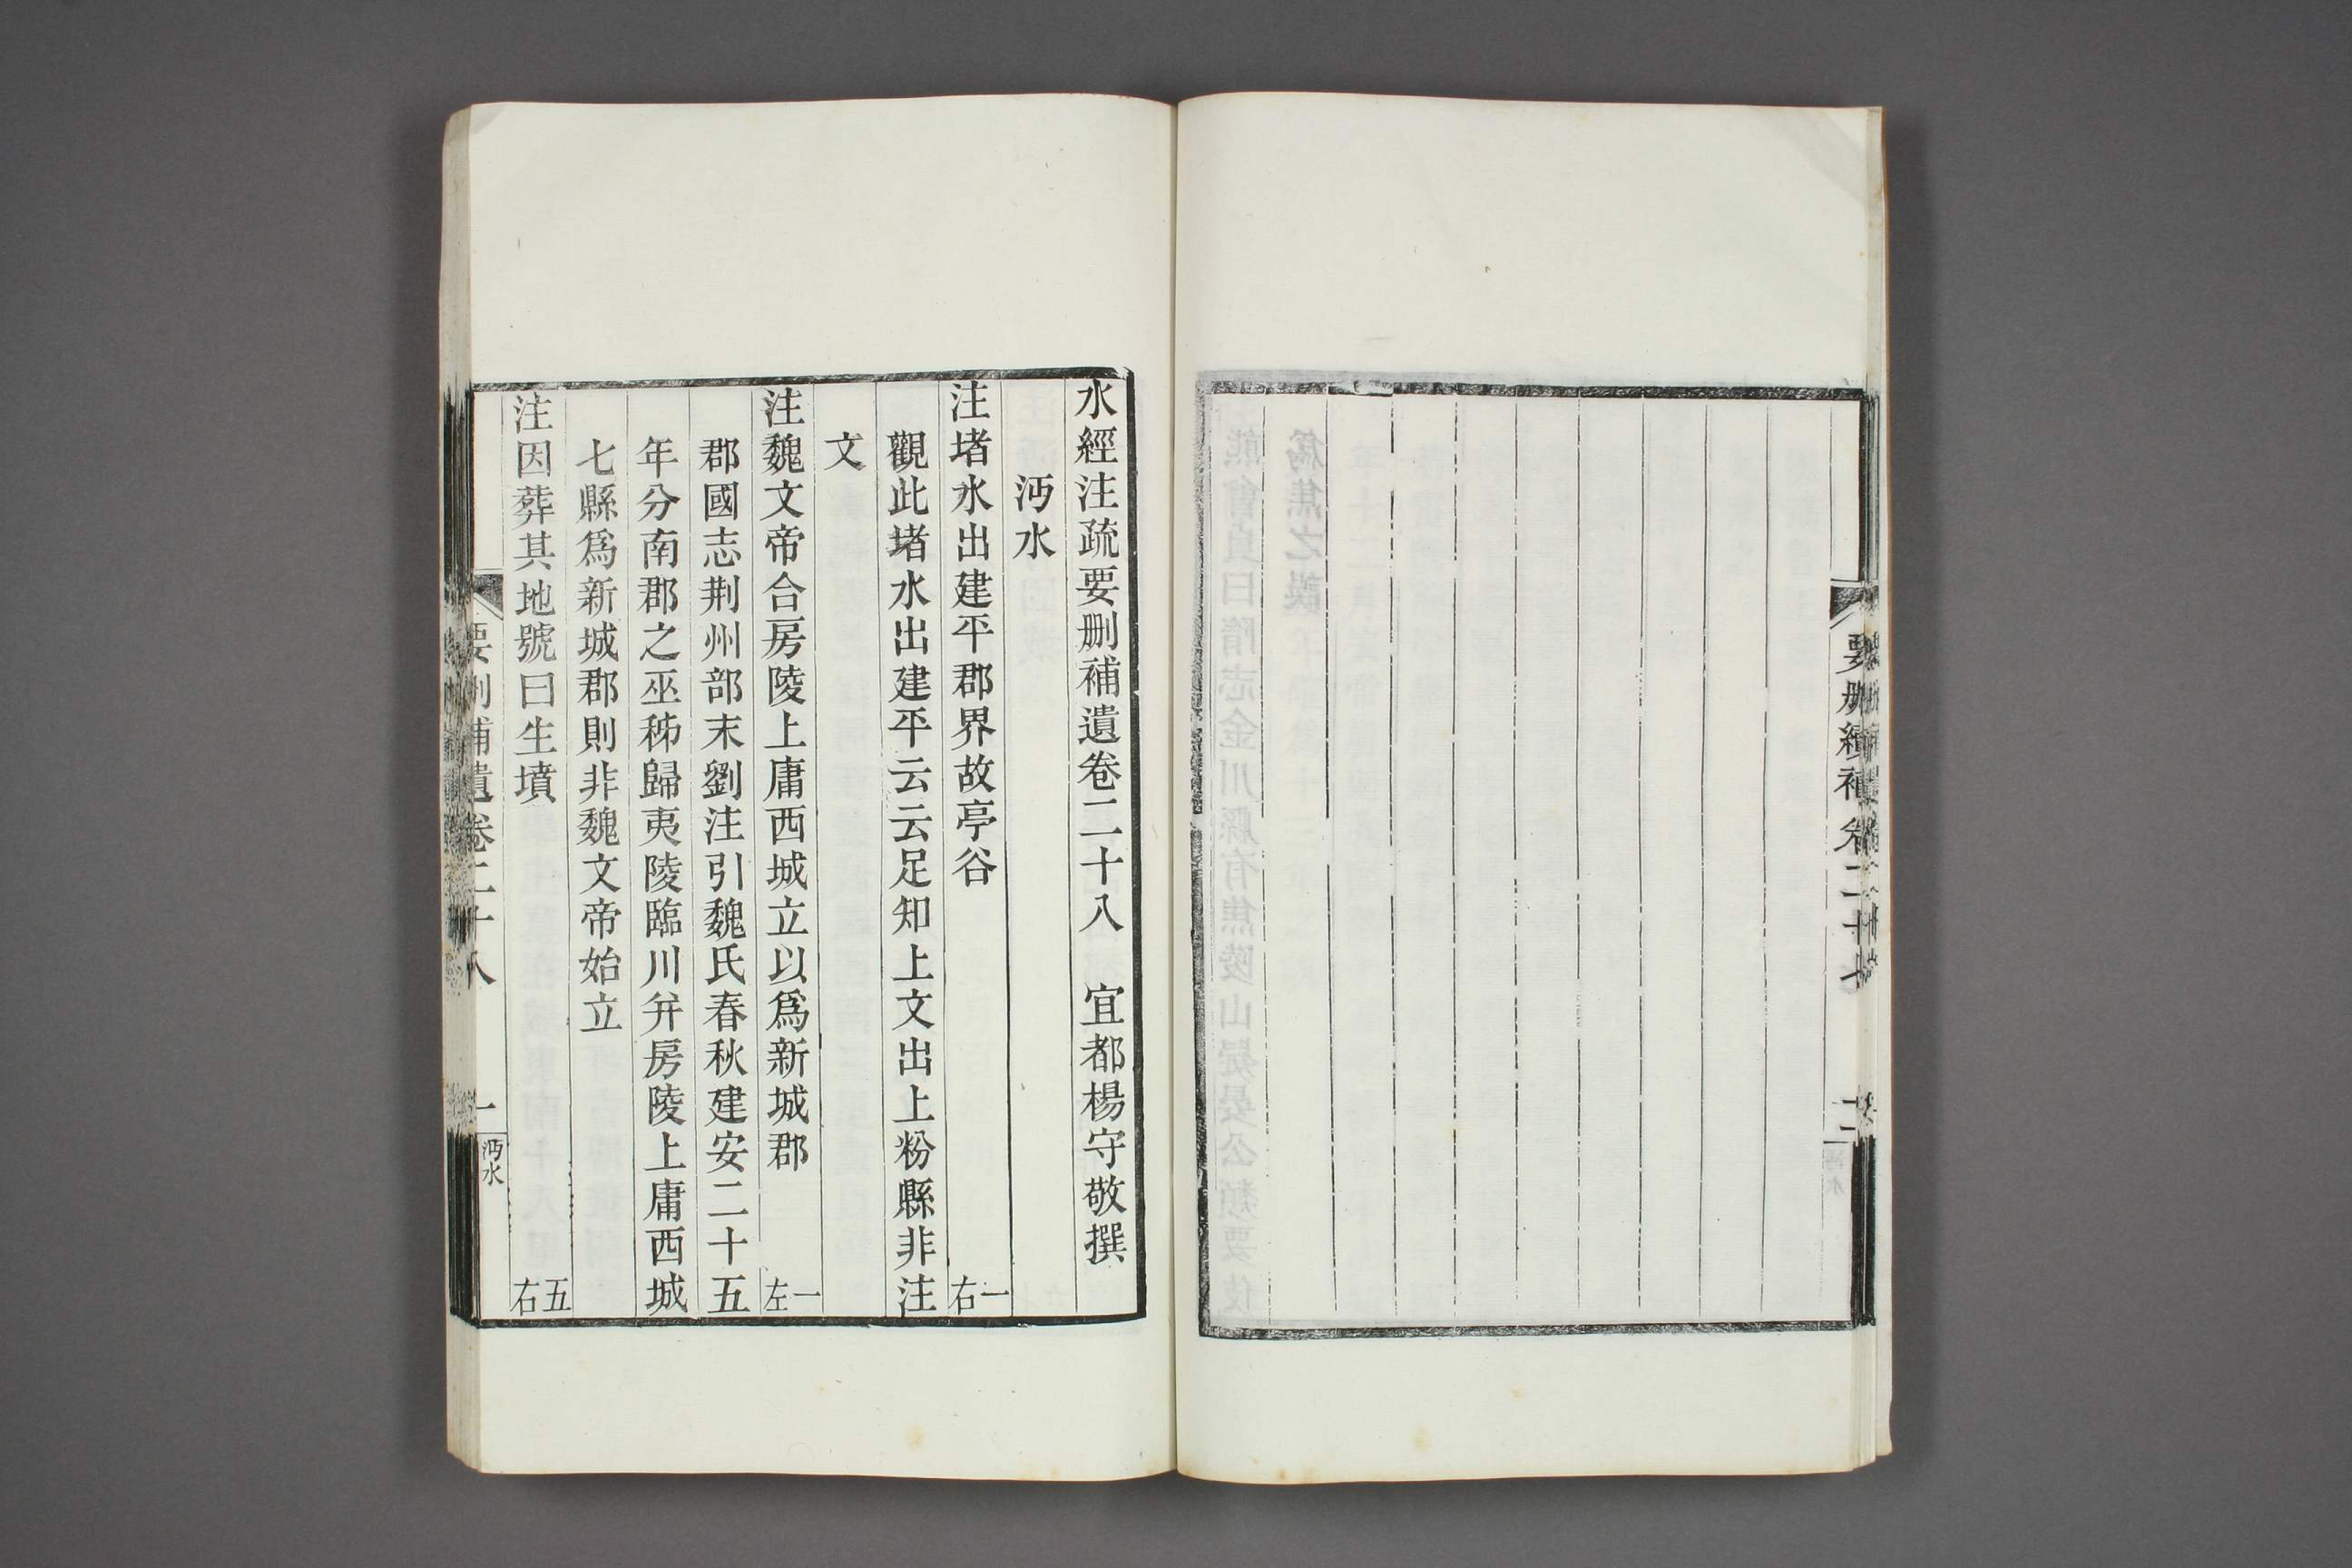 水經注疏要删補遺卷二十八　宜都楊守敬撰
沔水
注堵水出建平郡界故亭谷　一右
觀此堵水出建平云云足知上文出上粉縣非注
文
注魏文帝合房陵上庸西城立以爲新城郡　一左
郡國志荆州部末劉注引魏氏春秋建安二十五
年分南郡之巫秭歸夷陵臨川并房陵上庸西城
七縣爲新城郡則非魏文帝始立
注因葬其地號曰生墳　五右
要删補遺卷二十八　一　沔水
要删續補卷二十七　十二